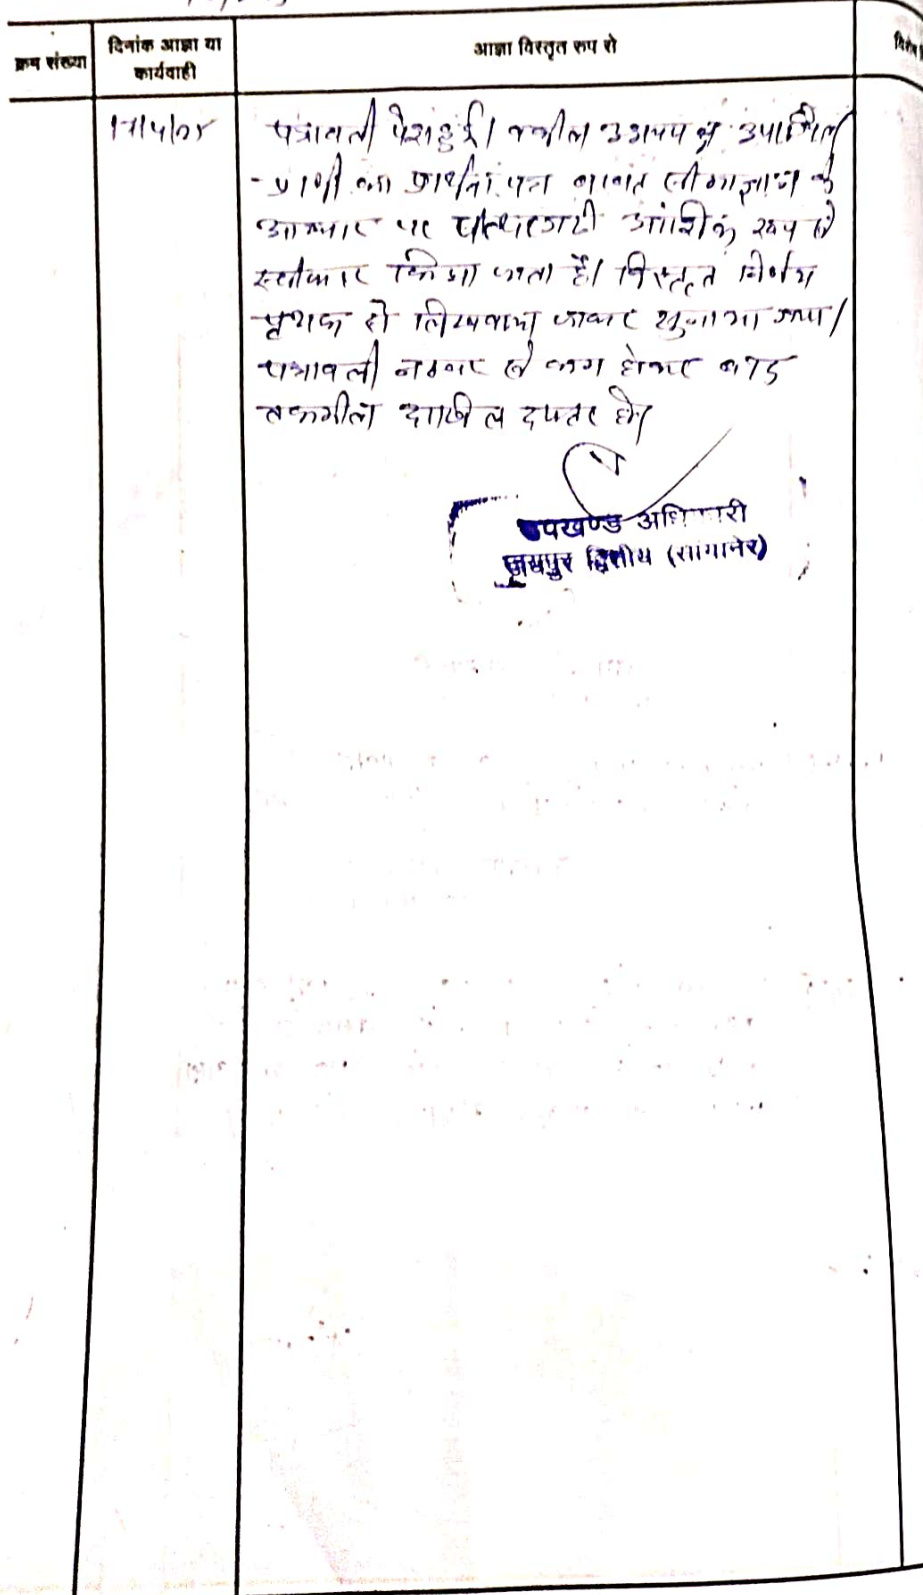 क्रम संख्या
दिनांक आज्ञा या
कार्यवाही
आज्ञा विस्तृत रुप से
पत्रावली पेश हुई। वकील उभयपक्ष उपस्थित
प्रार्थी का प्रार्थना पत्र बाबत सीमाज्ञान के
आधार पर पत्थरगढी आंशिक रूप से
स्वीकार किया जाता है। विस्तृत निर्णय
पृथक से लिखवाया जाकर सुनाया गया।
पत्रावली नम्बर से कम होकर बाद
तकमील दाखिल दफ्तर हो।
उपखण्ड अधिकारी
जयपुर द्वितीय (सांगानेर)